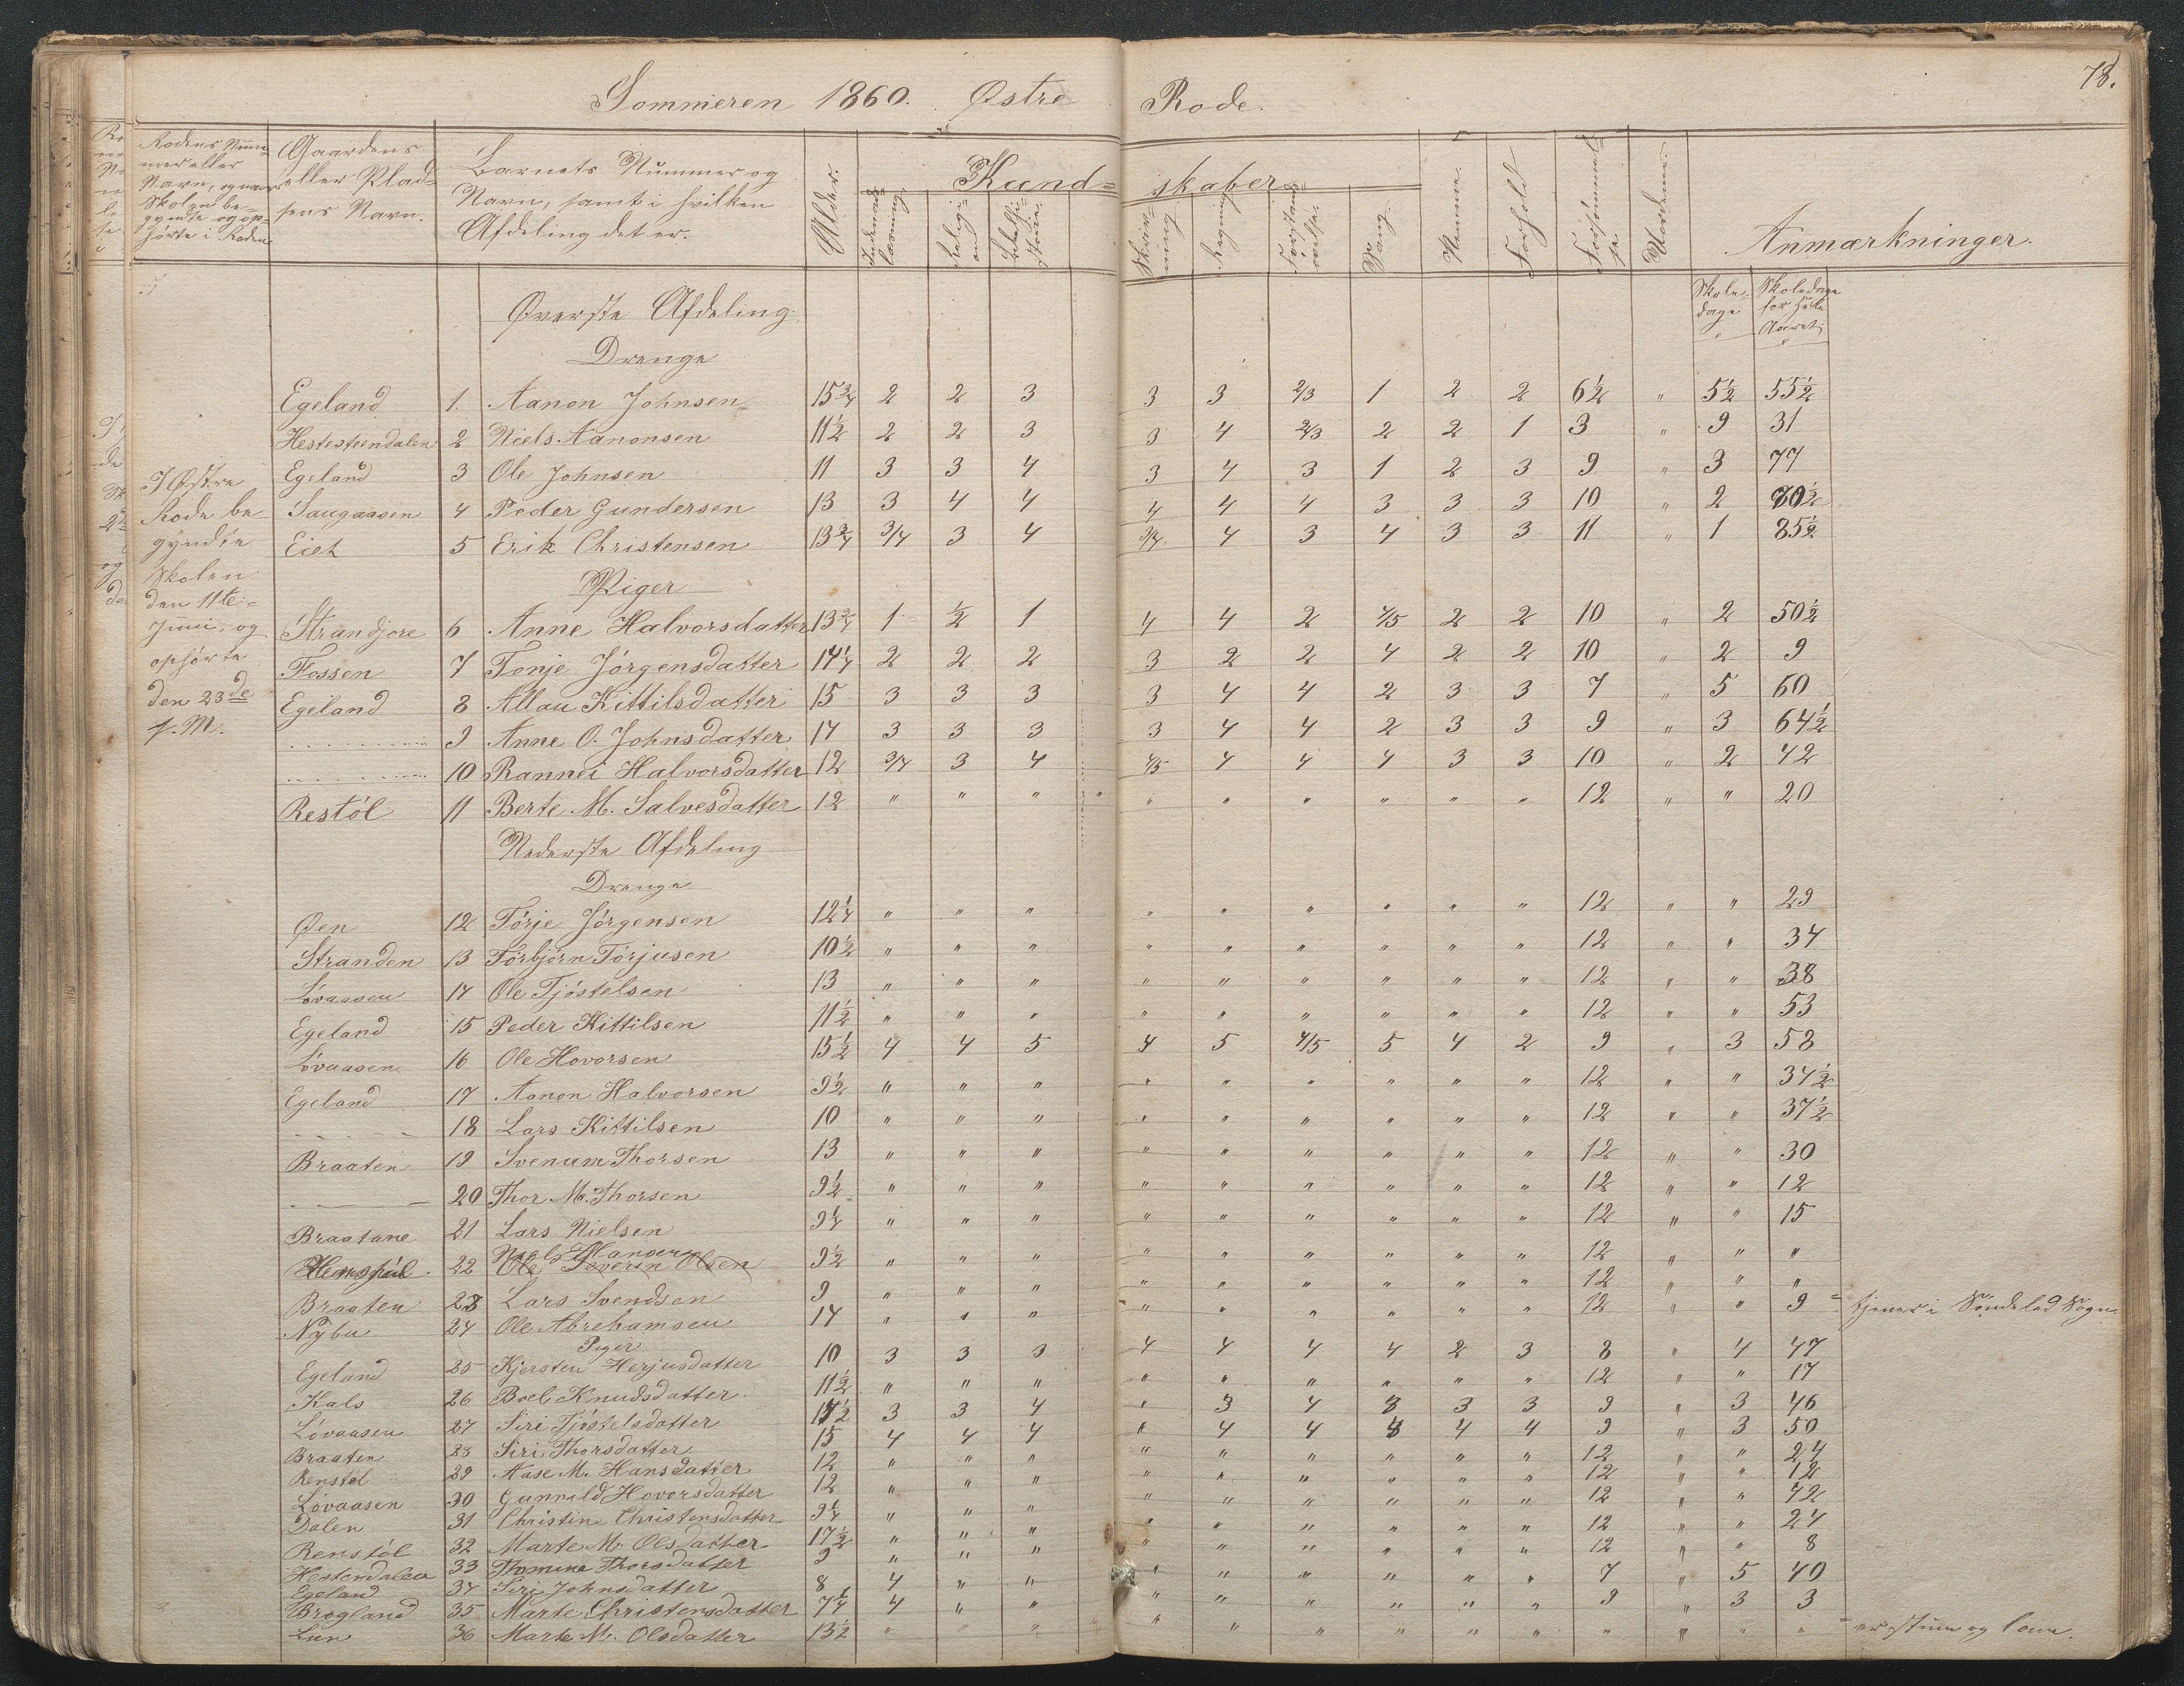 78.
Sommeren 1860. Østre Rode.
Rodens Nummer eller Navn, og naar Skolen begyndte og ophørte i Roden
Gaardens eller Pladsens Navn.
Barnets Nummer og Navn, samt i hvilken Afdeling det er.
Alder.
Kundskaber
Indenadslæsning
Religion
Bibelhistorie
Skrivning
Regning
Forstandsøvelse
Sang
Nemme
Forhold
Forsømmelse
Anmærkninger.
Skoledage
Skoledage for hele Aaret
I Østre
Rode be-
gyndte
Skolen
den 11te
Juni, og
ophørte
den 23de
s. M.
Øverste Afdeling.
Drenge
Egeland 1. Aanon Johnsen 15¾ 2 2 3 3 3 2/3 1 2 2 6½ " 5½ 55½
Hestesteendalen 2 Niels Aanonsen 11½ 2 2 3 3 4 2/3 2 2 1 3 " 9 31
Egeland 3 Ole Johnsen 11 3 3 4 3 4 3 1 2 3 9 " 3 77
Saugaasen 4 Peder Gundersen 13 3 4 4 4 4 4 3 3 3 10 " 2 70½
Eiet 5 Erik Christensen 13¾ 3/4 3 4 3/4 4 3 4 3 3 11 " 1 85½
Piger
Strandjore 6 Anne Halvorsdatter 13¾ 1 ½ 1 4 4 2 4/5 2 2 10 " 2 50½
Fossen 7 Tonje Jörgensdatter 14¼ 2 2 2 3 2 2 4 2 2 10 " 2 9
Egeland 8 Allau Kittilsdatter 15 3 3 3 3 4 4 2 3 3 7 " 5 60
......... 9 Anne O. Johnsdatter 14 3 3 3 3 4 4 2 3 3 9 " 3 64½
......... 10 Rannei Halvorsdatter 12 3/4 3 4 4/5 4 4 4 3 3 10 " 2 42
Restöl 11 Berte M. Salvesdatter 12 " " " " " " " " " " 12 " " 20
Nederste Afdeling
Drenge
Øen 12 Törje Jörgensen 12¼ " " " " " " " " " 12 " " 29
Stranden 13 Törbjörn Törjusen 10½ " " " " " " " " " 12 " " 34
Lövaasen 14 Ole Tjöstelsen 13 " " " " " " " " " 12 " " 38
Egeland 15 Peder Kittilsen 11½ " " " " " " " " " 12 " " 53
Lövaasen 16 Ole Hovorsen 15½ 4 4 5 4 5 4/5 5 4 2 9 " 3 58
Egeland 17 Aanon Halvorsen 9½ " " " " " " " " " 12 " " 34½
- - - - 18 Lars Kittilsen 10 " " " " " " " " " 12 " " 37½
Braaten 19 Svenum Thorsen 13 " " " " " " " " " 12 " " 30
- - - 20 Thor M. Thorsen 9½ " " " " " " " " " 12 " " 12
Braatane 21 Lars Nielsen 9¼ " " " " " " " " " 12 " " 15
22 Niels Hansen Ole Severin Olsen 9½ " " " " " " " " " 12 " " "
Braaten 23 Lars Svendsen 9 " " " " " " " " " 12 " " "
Nybu 24 Ole Abrehamsen 14 " " " " " " " " " 12 " " 9 = tjener i Søndeled Sogn
Piger
Egeland 25 Kjersten Herjusdatter 10 3 3 3 4 4 4 4 2 3 8 " 4 47
Kals 26 Boel Knudsdatter 11½ " " " " " " " " " 12 " " 17
Lövaasen 27 Siri Tjöstelsdatter 3 3 4 " 3 4 3 3 3 9 " 3 46
Braaten 28 Siri Thorsdatter 15 4 4 4 " 4 4 4 4 9 " 3 50
Renstöl 29 Aase M. Hansdatter 12 " " " " " " " " " 12 " " 24
Lövaasen 30 Gunnild Hovorsdatter 12 " " " " " " " " " 12 " " 12
Dalen 31 Christine Christensdatter 9¼ " " " " " " " " " 12 " " 42
Renstöl 32 Marte M. Olsdatter 17½ " " " " " " " " " 12 " " 24
Hestendalen 33 Thomine Thorsdatter 9 " " " " " " " " " 12 " " 8
Egeland 34 Siri Johnsdatter 8 4 " " " " " " " " 7 " 5 40
Brogland 35 Marte Christensdatter 7¼ 4 " " " " " " " " 9 " 3 3
Lien 36 Marte M. Olsdatter 13½ " " " " " " " " " " " " " = er stum og lam.